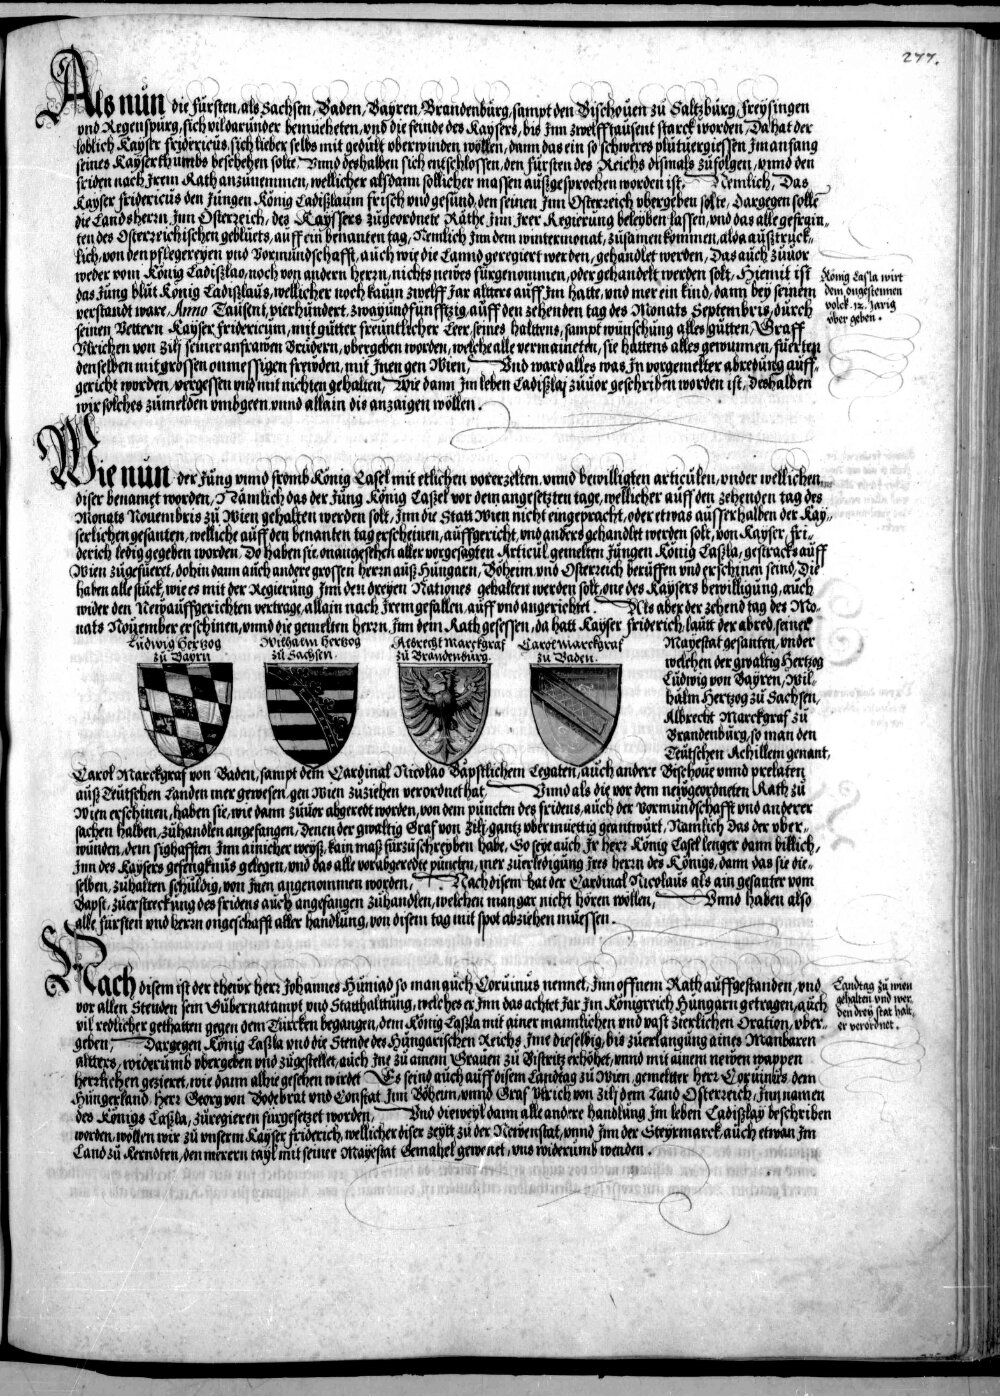 277.
Als nun die fürsten, als Sachsen, Baden, Bayren, Brandenburg, sampt den Bischouen zu Saltzburg, Freysingen
vnd Regenspurg, sich vil darunder bemüeheten, vnd die feinde des Kaysers, bis Inn zwelfftausent starck worden, Da hat der
loblich Kayser fridericus, sich lieber selbs mit gedult vberwinden wöllen, dann das ein so schweres plutuergiessen Im anfang
seines Kayserthumbs beschehen solte, Vnnd deshalben sich entschlossen, den fürsten des Reichs dismals zufolgen, vnnd den
friden nach Irem Rath anzunemmen, wellicher alsdann sollicher massen außgesprochen worden ist, Nemlich, Das
Kayser fridericus den Jungen König Ladißlaum frisch vnd gesund, den seinen Inn Osterreich vbergeben solte, Dargegen solle
die Landsherrn Inn Osterreich, des Kayssers zugeordnete Räthe, Inn Irer Regierung beleyben lassen, vnd das alle gefrain-
ten des Osterreichischen geblüets, auff ein benanten tag, Nemlich Inn dem wintermonat, zusamen kommen, alda außtruck-
lich, von den pflegereyen vnd Vormundschafft, auch wie die Lannd geregiert werden, gehandlet werden, Das auch zuuor
weder vom König Ladißlao, noch von andern herrn, nichts newes fürgenommen, oder gehandelt werden solt, Hiemit ist
das Jung blut König Ladißlaus, wellicher noch kaum zwelff Jar altters auff Im hatte, vnd mer ein kind, dann bey seinem
verstandt ware, Anno Tausent, vierhundert, zwayundfunfftzig, auff den zehenden tag des Monats Septembris, durch
seinen Vettern Kayser fridericum, mit gutter freuntlicher Leer, seines halttens, sampt wünschung alles gutten, Graff
Vlrichen von Zilj seiner anfrawen Brudern, vbergeben worden, welche alle vermaineten, sie hattens alles gewunnen, fuerten
denselben mit grossen onmessigen frewden, mit Inen gen Wien, Vnd ward alles was In vorgemelter abredung auff-
gericht worden, vergessen vnd mit nichten gehalten, Wie dann Im leben Ladißlaj zuuor geschriben worden ist, Deshalben
wir solches zumelden vmbgeen vnnd allain dis anzaigen wöllen.
König Lasla wirt
dem ongestemen
volck .12. Jarig
vber geben.
Wie nun der Jung vnnd fromb König Lasel mit etlichen vorerzelten, vnnd bewilligten articulen, vnder wellichen
diser benamet worden, Nämlich das der Jung König Laßel vor dem angesetzten tage, wellicher auff den zehenden tag des
Monats Nouembris zu Wien gehalten werden solt, Inn die Statt Wien nicht eingepracht, oder etwas ausserhalben der Kay-
serlichen gesanten, welliche auff den benanten tag erscheinen, auffgericht, vnd anders gehandlet werden solt, von Kayser, fri-
derich ledig gegeben worden. Do haben sie, onangesehen aller vorgesagten Articul, gemelten Jungen König Laßla, gestracks auff
Wien zugefueret, dohin dann auch andere grossen herrn auß Hungarn, Böheim vnd Osterreich beruffen vnd erschinen seind, Die
haben alle stuck, wie es mit der Regierung Inn den dreyen Nationes gehalten werden solt, one des Kaysers bewilligung, auch
wider den Newauffgerichten vertrage, allain nach Irem gefallen, auff vnd angerichtet. Als aber der zehend tag des Mo-
nats Nouember erschinen, vnnd die gemelten herrn, Inn dem Rath gesessen, da hatt Kayser friderich, lautt der abred, seiner
Ludwig Hertzog
zu Bayrn
Wilhalm Hertzog
zu Sachsen.
Albrecht Marckgraf
zu Brandenburg.
Carol Marckgraf
zu Baden.
Mayestat gesanten, vnder
welchen der gwaltig Hertzog
Ludwig von Bayren, Wil-
halm Hertzog zu Sachsen,
Albrecht Marckgraf zu
Brandenburg, so man den
Teutschen Achillem genant,
Carol Marckgraf von Baden, sampt dem Cardinal Nicolao Bäpstlichem Legaten, auch andere Bischoue vnnd prelaten
auß Teutschen Landen mer gewesen, gen Wien zuziehen verordnet hat, Vnnd als die vor dem newgeordneten Rath zu
Wien erschinen, haben sie, wie dann zuuor abgeredt worden, von dem puncten des fridens, auch der Vormundschafft vnd anderer
sachen halben, zuhandlen angefangen, Denen der gwaltig Graf von Zilj gantz vbermuettig geantwurt, Namlich Das der vber-
wunden, dem sighafften Inn ainicher weyß, kain maß fürzuschreyben habe, So seye auch Ir herr König Lasel lenger dann billich,
Inn des Kaysers gefengknus gelegen, vnd das alle vorabgeredte puncten, mer zuerledigung Ires herrn des Königs, dann das sie die-
selben, zuhalten schuldig, von Inen angenommen worden, Nach disem hat der Cardinal Nicolaus als ain gesanter vom
Bapst, zuerstreckung des fridens auch angefangen zuhandlen, welchen man gar nicht hören wöllen, Vnnd haben also
alle fürsten vnd herrn ongeschafft aller handlung, von disem tag mit spot abziehen müessen.
Nach disem ist der thewr herr Johannes Huniad so man auch Coruinus nennet, Inn offnem Rath auffgestanden, vnd
vor allen Stenden sein Gubernatampt vnd Statthalttung, welches er Inn das achtet Jar Im Königreich Hungarn getragen, auch
vil redlicher gethatten gegen dem Türcken begangen, dem König Laßla mit ainer mannlichen vnd vast zierlichen Oration, vber-
geben, Dargegen König Laßla vnd die Stende des Hungarischen Reichs Ime dieselbig, bis zuerlangung aines Manbaren
altters, widerumb vbergeben vnd zugestellet, auch Ine zu ainem Grauen zu Bistritz erhöhet, vnnd mit ainem newen wappen
herrlichen gezieret, wie dann alhie gesehen wirdet Es seind auch auff disem Landtag zu Wien, gemeltter herr Coruinus dem
Hungerland, Herr Georg von Bodebrat vnd Constat Inn Böheim, vnnd Graf Vlrich von Zilj dem Land Osterreich, Inn namen
des Königs Laßla, zuregieren fürgesetzet worden, Vnd dieweyl dann alle andre handlung Im leben Ladißlaj beschriben
worden, wöllen wir zu vnserm Kayser friderich, wellicher diser zeytt zu der Newenstat, vnnd Inn der Steyrmarck, auch etwan Im
Land zu Kerndten, den merern tayl mit seiner Mayestat Gemahel gewonet, vns widerumb wenden.
Landtag zu wien
gehalten vnd wer
den drey stat halt,
er verordnet.